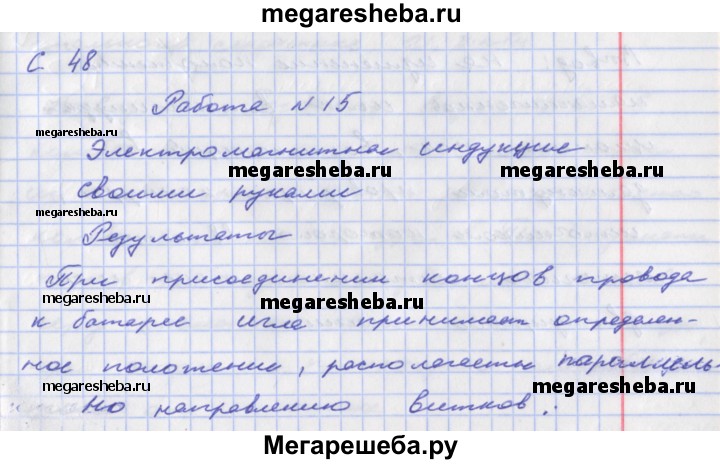 megaresheba.ru
С 48
Работа N 15
megaresheba.ru
Электромагнитная индукция
megaresheba.ru
своими руками
megaresheba.ru
Результаты
При присоединении концов провода
megaresheba.ru
megaresheba.ru
к батарее игла принимает определен-
ное положении, располагаеться параллель-
megaresheba.ru
megaresheba.ru
но направлению витков.
Мегарешеба.ру